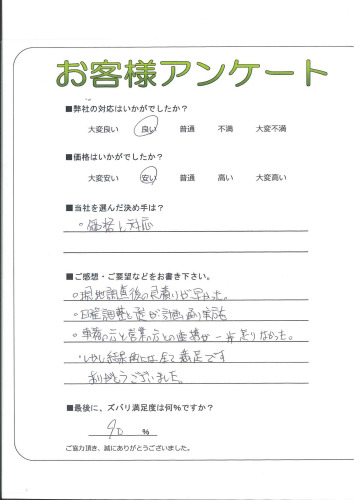 お客様アンケート
■弊社の対応はいかがでしたか?
大変良い 良い 普通 不満 大変不満
■価格はいかがでしたか?
大変安い 安い 普通 高い 大変高い
■当社を選んだ決め手は?
・価格と対応
■ご感想・ご要望などをお書き下さい。
・現地調査後の見積りが早かった。
・日程調整と 計画通り実施
・事務の方と営業の方との連携が一歩足りなかった。
・しかし結果的には全て満足です
ありがとうございました。
■最後に、ズバリ満足度は何%ですか?
90 %
ご協力頂き、誠にありがとうございました。